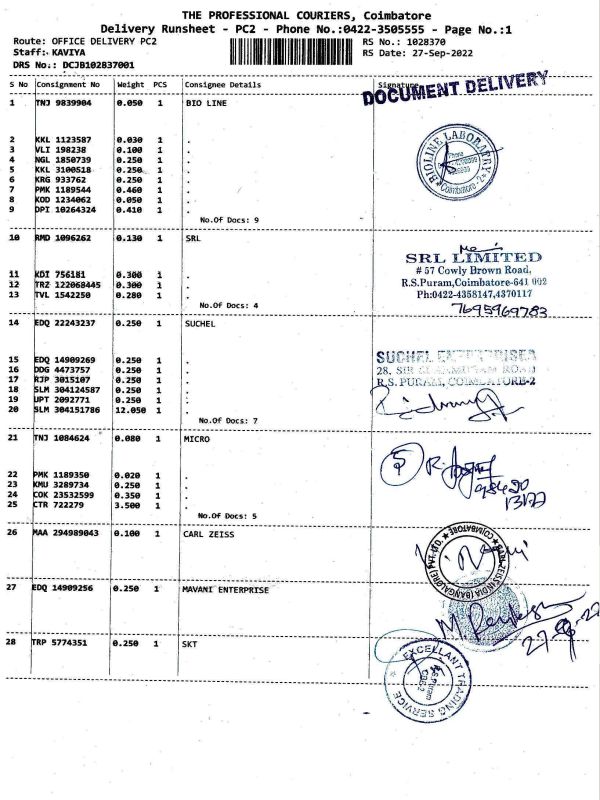 THE PROFESSIONAL COURIERS, Coimbatore
Delivery Runsheet - PC2 - Phone No.:0422-3505555 - Page No.:1
Route: OFFICE DELIVERY PC2 RS No.: 1028370
Staff: KAVIYA RS Date: 27-Sep-2022
DRS No.: DCJB102837001
S No Consignment No Weight PCS Consignee Details Signature
DOCUMENT DELIVERY
1 TNJ 9839904 0.050 1 BIO LINE
BIOLINE LABORATORY
Phone
Coimbatore-2
2 KKL 1123587 0.030 1 .
3 VLI 198238 0.100 1 .
4 NGL 1850739 0.250 1 .
5 KKL 3100518 0.250 1 .
6 KRG 933762 0.250 1 .
7 PMK 1189544 0.460 1 .
8 KOD 1234062 0.050 1 .
9 DPI 10264324 0.410 1 .
No.Of Docs: 9
10 RMD 1096262 0.130 1 SRL
SRL LIMITED
# 57 Cowly Brown Road,
R.S.Puram,Coimbatore-641 002
Ph:0422-4358147,4370117
7695969783
11 KDI 756181 0.300 1 .
12 TRZ 122068445 0.300 1 .
13 TVL 1542250 0.280 1 .
No.Of Docs: 4
14 EDQ 22243237 0.250 1 SUCHEL
SUCHEL ENTERPRISES
28, SIR ROAD
R.S. PURAM, COIMBATORE-2
15 EDQ 14909269 0.250 1 .
16 DDG 4473757 0.250 1 .
17 RJP 3015107 0.250 1 .
18 SLM 304124587 0.250 1 .
19 UPT 2092771 0.250 1 .
20 SLM 304151786 12.050 1 .
No.Of Docs: 7
21 TNJ 1084624 0.080 1 MICRO
22 PMK 1189350 0.020 1 .
23 KMU 3289734 0.250 1 .
24 COK 23532599 0.350 1 .
25 CTR 722279 3.500 1 .
No.Of Docs: 5
26 MAA 294989043 0.100 1 CARL ZEISS
COIMBATORE
INDIA (BANGALORE) PVT. LTD.
27 EDQ 14909256 0.250 1 MAVANI ENTERPRISE
28 TRP 5774351 0.250 1 SKT
EXCELLANT TRADING SERVICE
R.S.Puram
CBE-2